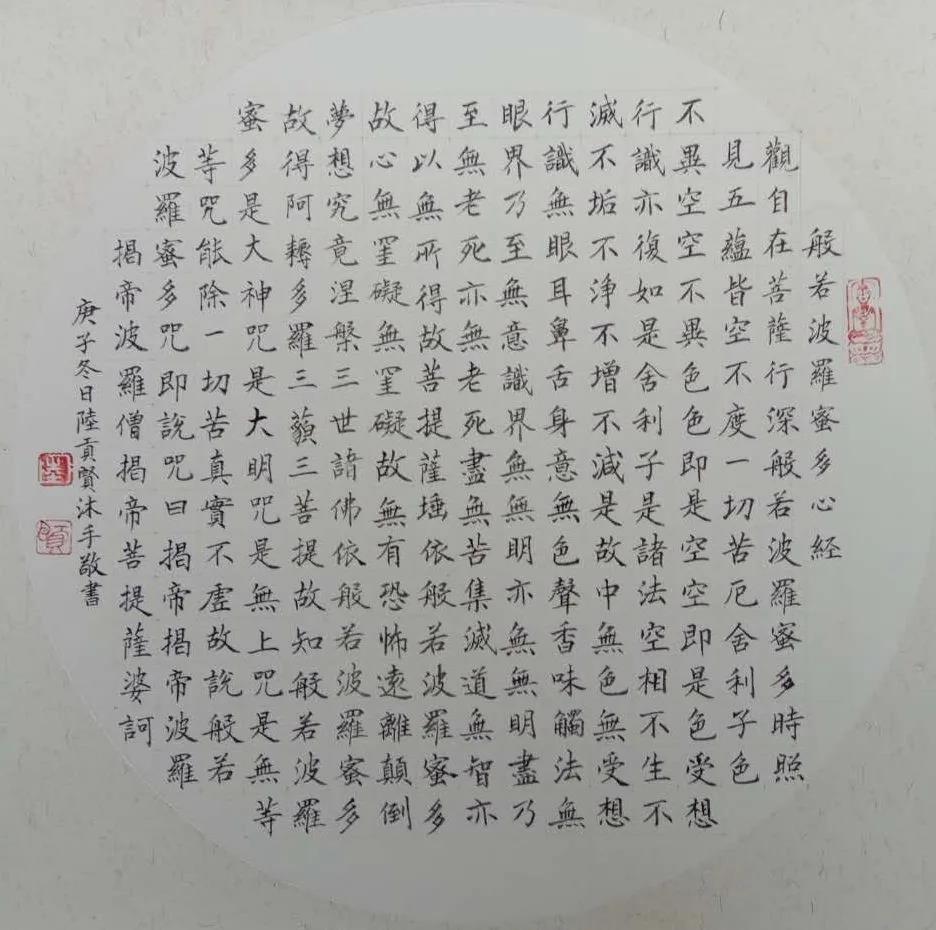 般若波羅蜜多心経
觀自在菩薩行深般若波羅蜜多時照
見五蘊皆空不度一切苦厄舍利子色
不異空空不異色色即是空空即是色受想
行識亦復如是舍利子是諸法空相不生不
滅不垢不淨不增不減是故中無色無受想
行識無眼耳鼻舌身意無色聲香味觸法無
眼界乃至無意識界無無明亦無無明盡乃
至無老死亦無老死盡無苦集滅道無智亦
得以無所得故菩提薩埵依般若波羅蜜多
故心無罣礙無罣礙故無有恐怖遠離顛倒
夢想究竟涅槃三世諸佛依般若波羅蜜多
故得阿耨多羅三藐三菩提故知般若波羅
蜜多是大神咒是大明咒是無上咒是無等
等咒能除一切苦真實不虛故說般若
波羅蜜多咒即說咒曰揭帝揭帝波羅
揭帝波羅僧揭帝菩提薩婆訶
庚子冬日陸貢賢沐手敬書